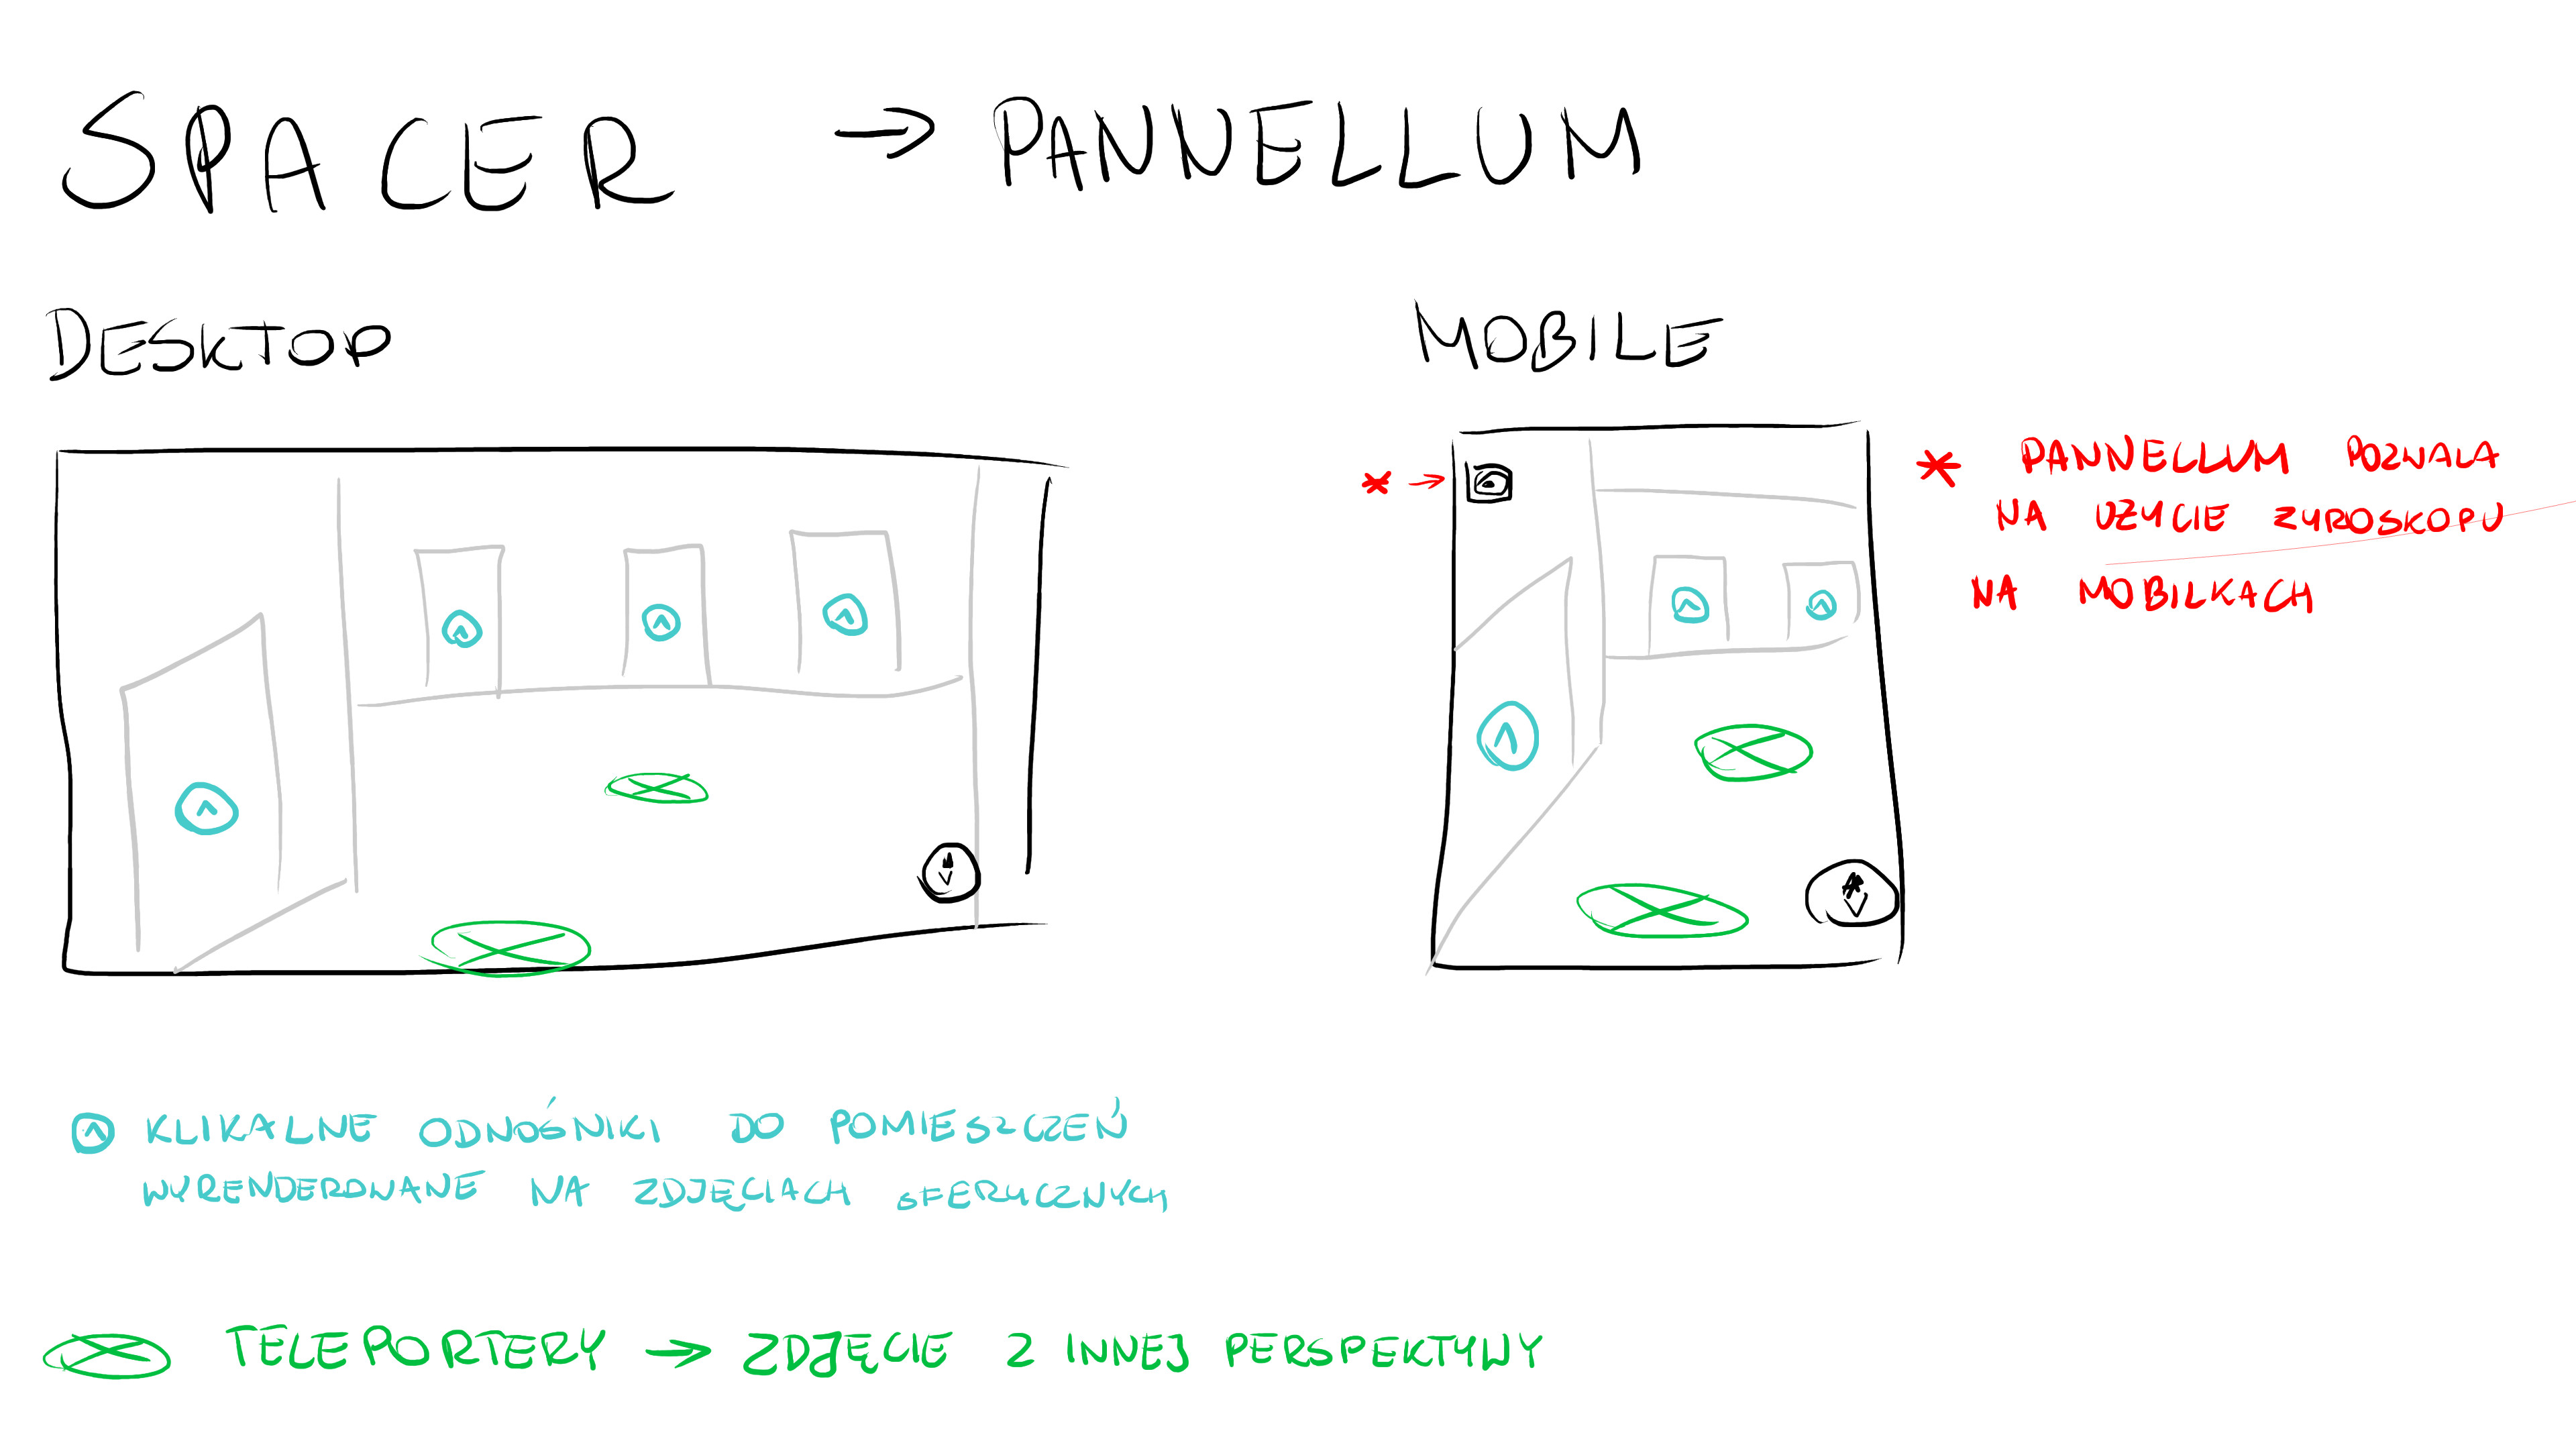 SPACER → PANNELLUM
DESKTOP
MOBILE
* →
* PANNELLUM POZWALA
NA UŻYCIE ZYROSKOPU
NA MOBILKACH
KLIKALNE ODNOŚNIKI DO POMIESZCZEŃ
WYRENDEROWANE NA ZDJĘCIACH SFERYCZNYCH
TELEPORTERY → ZDJĘCIE Z INNEJ PERSPEKTYWY